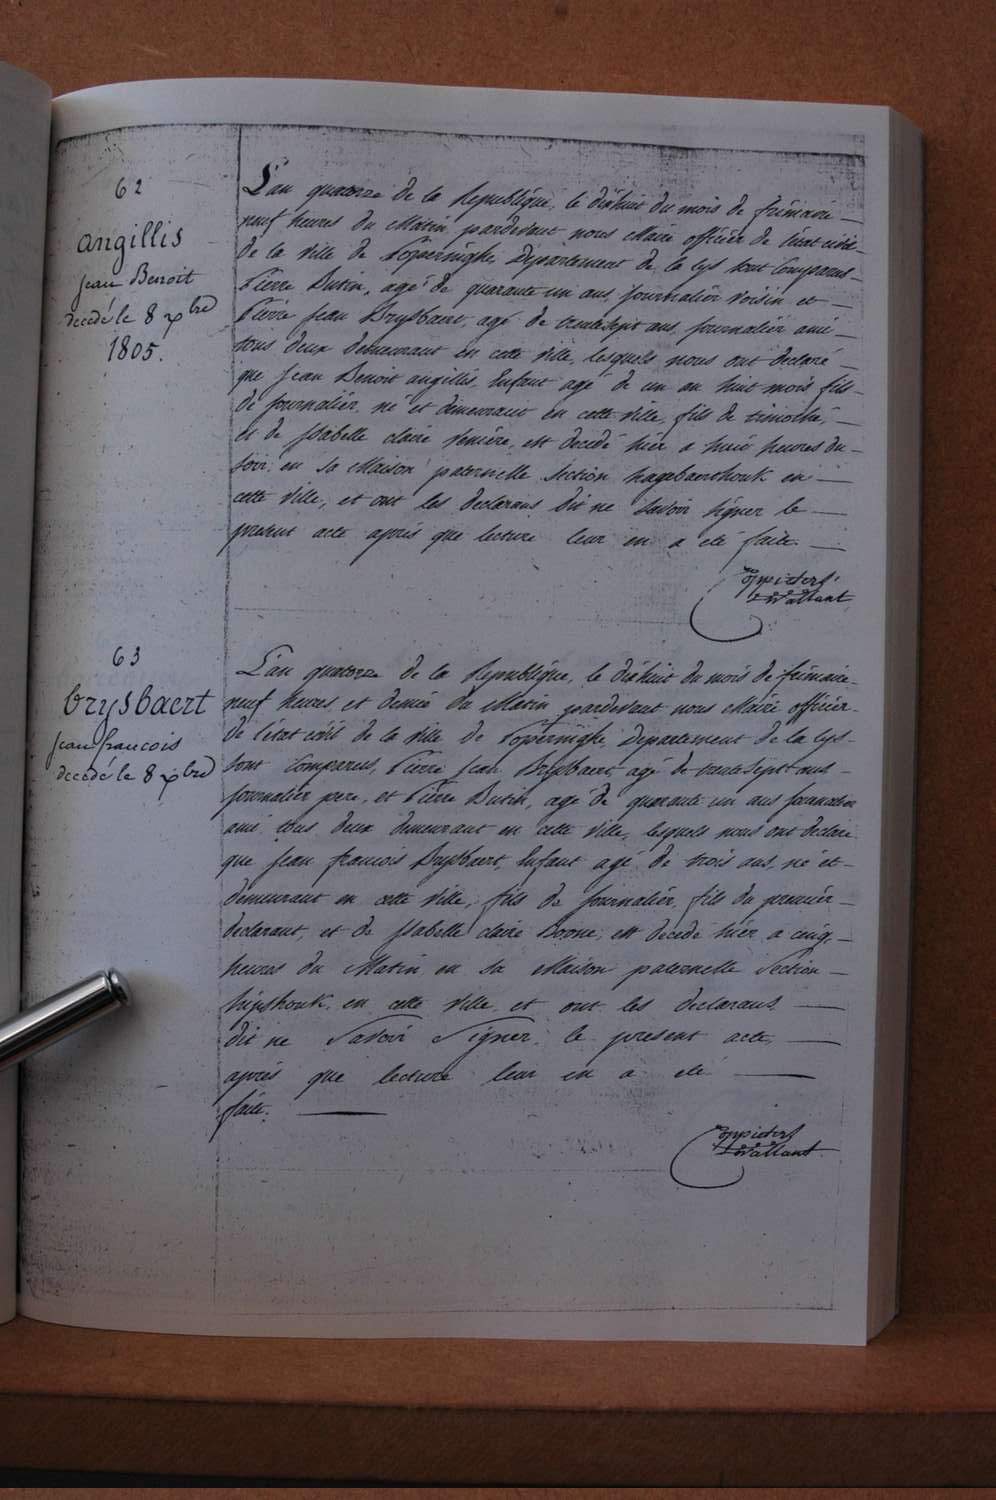 62
angillis
Jean Benoit
decedé le 8 xbre
1805.
L'an quatorze de la Republique, le dixhuit du mois de frimaire
neuf heures du Matin, pardevant nous Maire officier de l'état civil
de la ville de Poperinghe, Departement de la Lys sont Comparus
Pierre Butin, agé de quarante un ans, Journalier Voisin et
Pierre Jean Brysbaert, agé de trente sept ans, Journalier ami
tous deux demeurant en cette ville, lesquels nous ont declaré
que Jean Benoit angillis, Enfant agé de un an huit mois fils
de Journalier, né et demeurant en cette ville, fils de timothé,
et de Isabelle claire, est decedé hier a huit heures du
Soir, en sa Maison paternelle Section en
cette ville, et ont les declarans dit ne Savoir signer le
present acte après que lecture leur en a eté faite.
63
brysbaert
Jean francois
decedé le 8 xbre
L'an quatorze de la Republique, le dixhuit du mois de frimaire
neuf heures et demie du Matin pardevant nous Maire officier
de l'état civil de la ville de Poperinghe, Departement de la Lys
sont Comparus, Pierre Jean Brysbaert, agé de trente sept ans
Journalier pere, et Pierre Butin, agé de quarante un ans Journalier
ami, tous deux demeurant en cette ville, lesquels nous ont declaré
que Jean francois Brysbaert, Enfant agé de trois ans, né et
demeurant en cette ville, fils de Journalier, fils du premier
declarant, et de Isabelle claire Boone, est decedé hier a cinq
heures du Matin en sa Maison paternelle Section
en cette ville, et ont les declarans
dit ne Savoir Signer, le present acte,
après que lecture leur en a eté
faite.